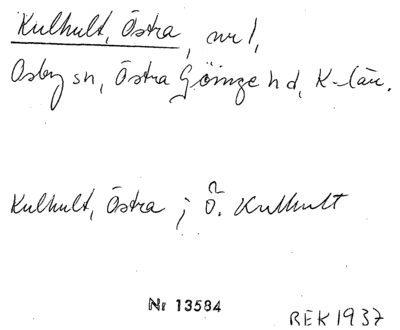 Kulhult, Östra, nr 1,
Osby sn, Östra Göinge hd, K-län.
Kulhult, Östra ; Ö. Kulhult
Nr 13584
REK 1937